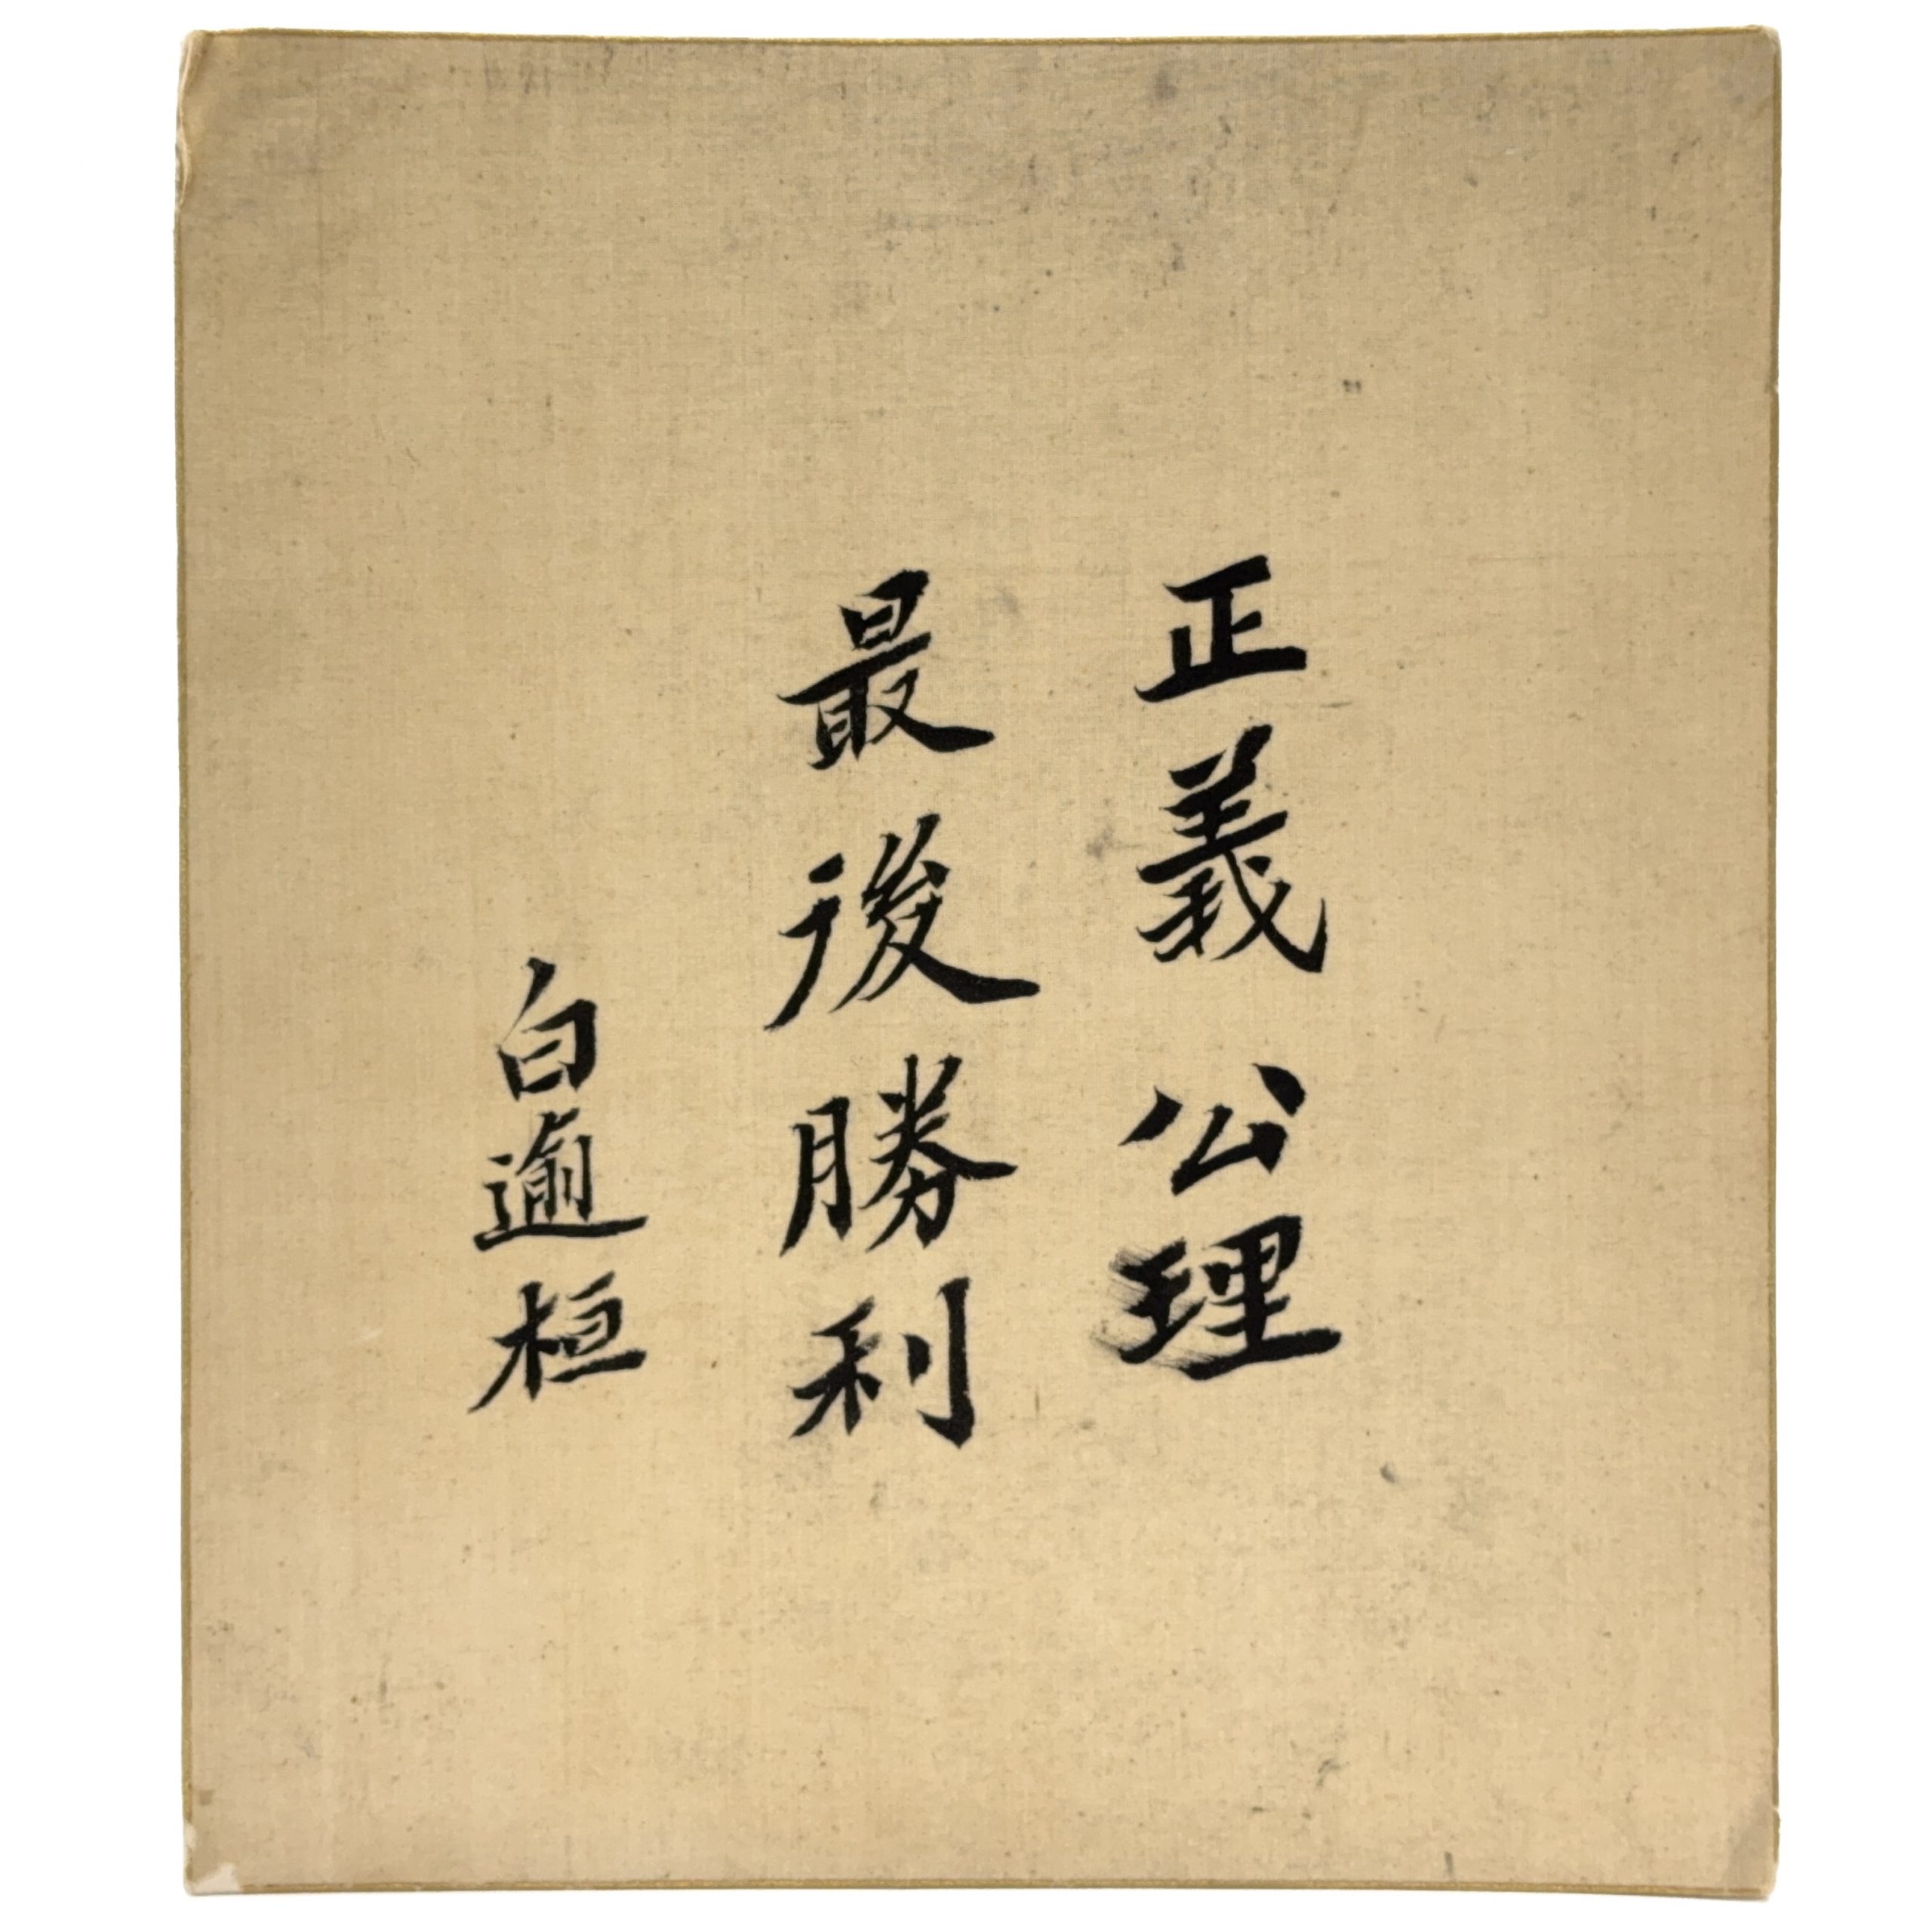 正義公理
最後勝利
白逾桓